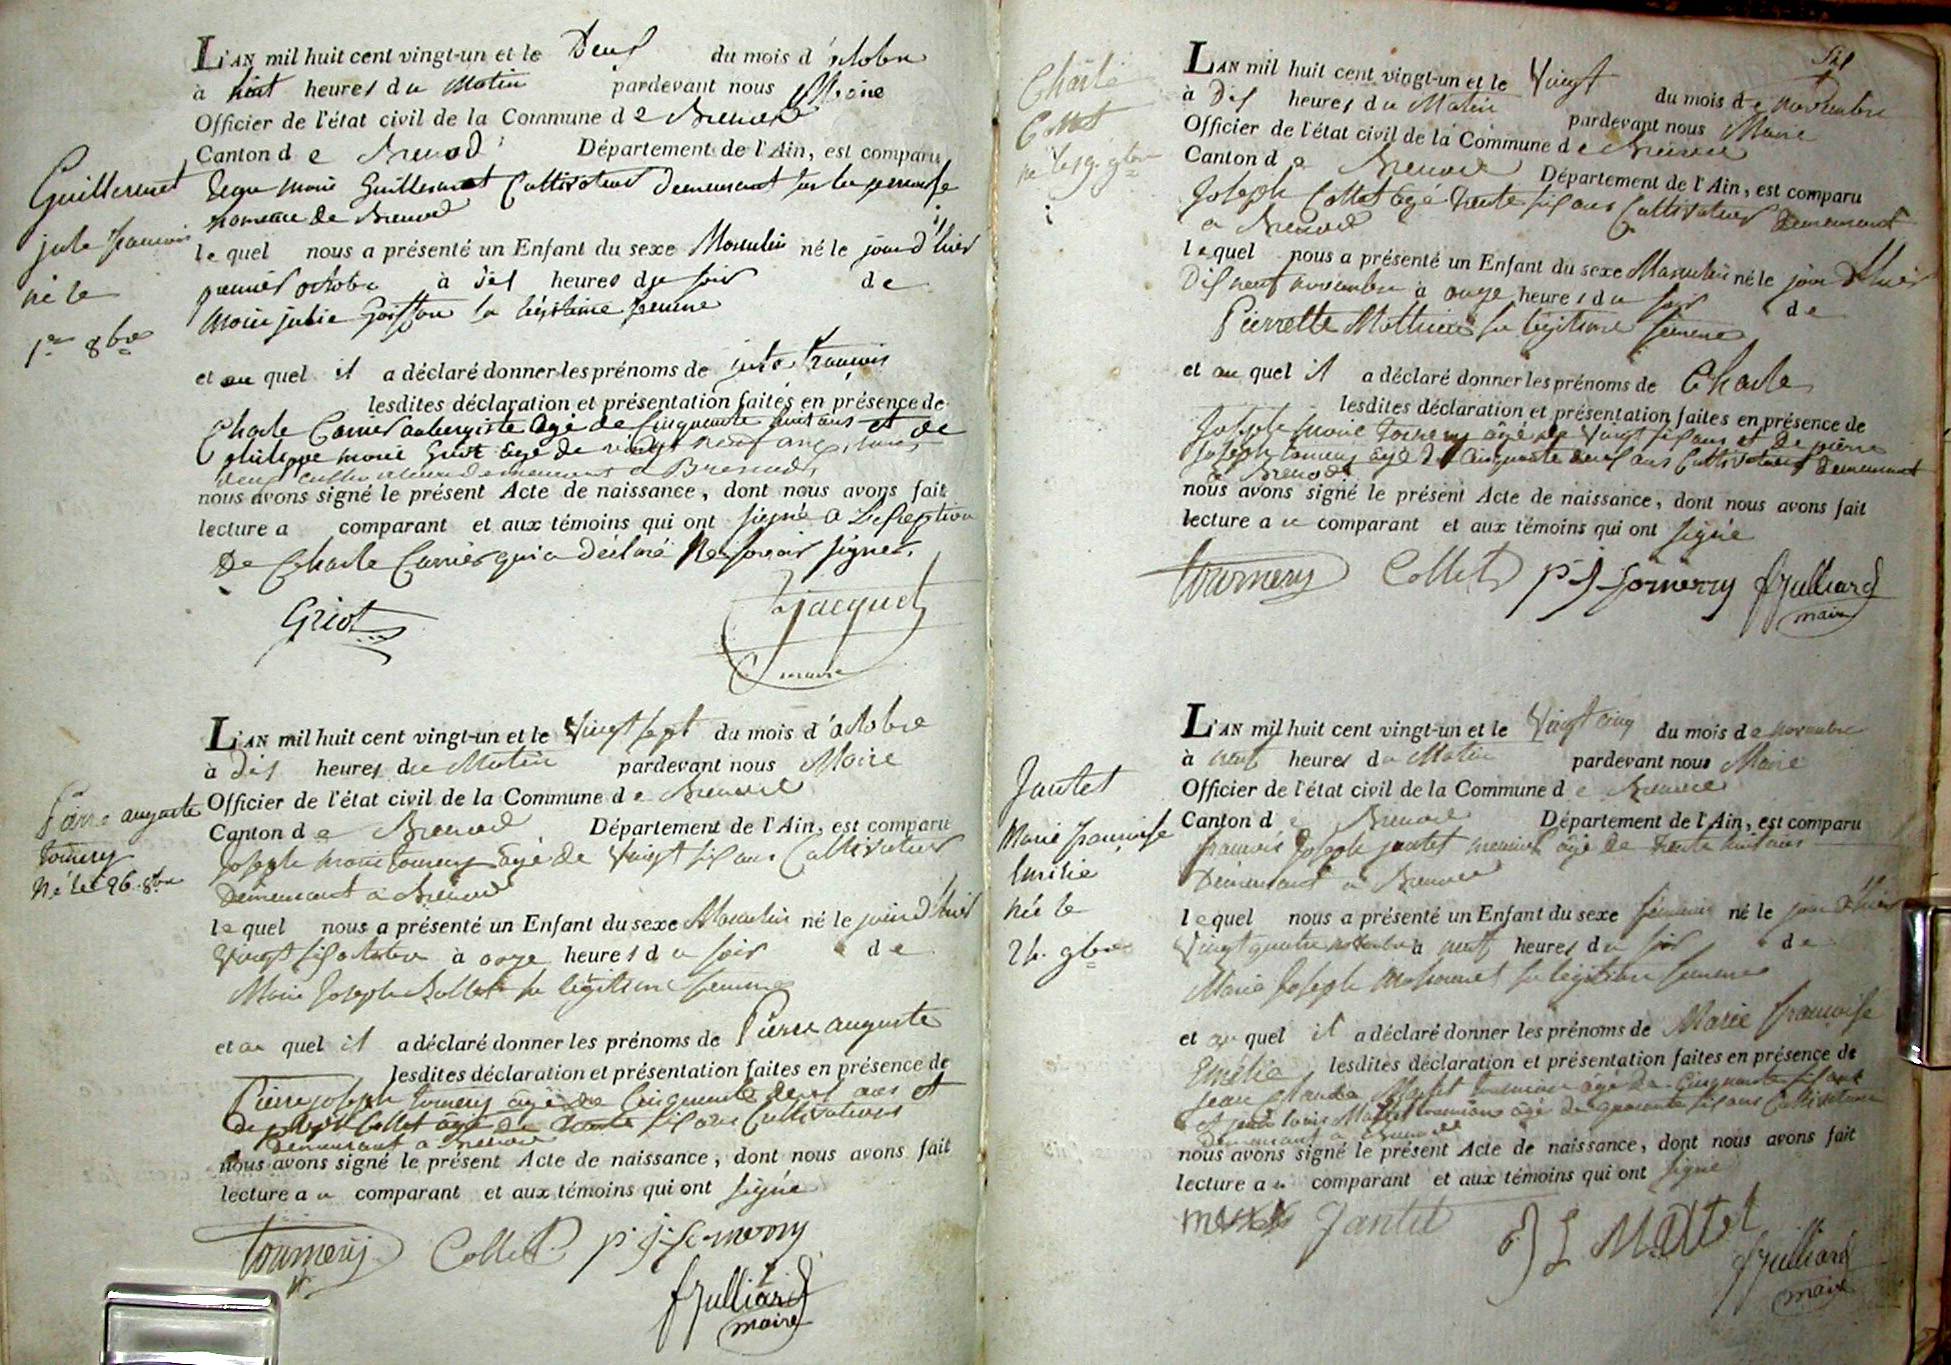 L'AN mil huit cent vingt-un et le Deux du mois d'octobre
à huit heures du Matin pardevant nous Maire
Officier de l'état civil de la Commune de Brenod
Canton de Brenod Département de l'Ain, est comparu
marie Guillermet Cultivateur demeurant sur la
de Brenod
Guillermet
jule françois
né le
1er 8bre
lequel nous a présenté un Enfant du sexe Masculin né le jour d'hier
premier octobre à dix heures du soir de
Marie julie sa légitime femme
et au quel il a déclaré donner les prénoms de jule françois
lesdites déclaration et présentation faites en présence de
Charle Carrier aubergiste âgé de Cinquante huit ans et de
philippe marie Griot âgé de vingt neuf ans,
demeurant a Brenod,
nous avons signé le présent Acte de naissance, dont nous avons fait
lecture a comparant et aux témoins qui ont signé a L'exception
De Charle Carrier qui a déclaré Ne savoir signer.
Griot Jacquet
maire
L'AN mil huit cent vingt-un et le Vingt sept du mois d'octobre
à dix heures du Matin pardevant nous Maire
Officier de l'état civil de la Commune de Brenod
Canton de Brenod Département de l'Ain, est comparu
Joseph marie tornery âgé de vingt six ans Cultivateur
Demeurant a Brenod
Pierre auguste
tornery
Né le 26. 8bre
lequel nous a présenté un Enfant du sexe Masculin né le jour d'hier
Vingt six octobre à onze heures du soir de
Marie Joseph Collet sa légitime femme
et au quel il a déclaré donner les prénoms de Pierre auguste
lesdites déclaration et présentation faites en présence de
Pierre joseph tornery âgé de Cinquante deux ans et
de joseph Collet âgé de trente six ans Cultivateurs
demeurant a Brenod
nous avons signé le présent Acte de naissance, dont nous avons fait
lecture au comparant et aux témoins qui ont signé
tournery Collet p. j. tornerry
f julliard
maire
L'AN mil huit cent vingt-un et le Vingt du mois de novembre
à Dix heures du Matin pardevant nous Maire
Officier de l'état civil de la Commune de Brenod
Canton de Brenod Département de l'Ain, est comparu
Joseph Collet âgé trente six ans Cultivateur Demeurant
a Brenod
Charle
Collet
né le 19. 9bre
lequel nous a présenté un Enfant du sexe Masculin né le jour d'hier
Dix neuf novembre à onze heures du soir de
Pierrette Mathieu sa légitime femme
et au quel il a déclaré donner les prénoms de Charle
lesdites déclaration et présentation faites en présence de
Joseph marie tornery âgé de vingt six ans et de pierre
Joseph tornery âgé de Cinquante deux ans Cultivateurs Demeurant
a Brenod
nous avons signé le présent Acte de naissance, dont nous avons fait
lecture au comparant et aux témoins qui ont signé
tournery Collet p j tornerry f julliard
maire
L'AN mil huit cent vingt-un et le Vingt cinq du mois de novembre
à neuf heures du Matin pardevant nous Maire
Officier de l'état civil de la Commune de Brenod
Canton de Brenod Département de l'Ain, est comparu
françois Joseph jantet âgé de trente huit ans
Demeurant a Brenod
Jantet
Marie françoise
Emélie
née le
24. 9bre
lequel nous a présenté un Enfant du sexe féminin né le jour d'hier
Vingt quatre novembre à neuf heures du soir de
Marie Joseph sa légitime femme
et au quel il a déclaré donner les prénoms de Marie françoise
Emélie lesdites déclaration et présentation faites en présence de
jean claude âgé de Cinquante six ans
et jean louis âgé de quarante six ans Cultivateurs
demeurant a Brenod
nous avons signé le présent Acte de naissance, dont nous avons fait
lecture au comparant et aux témoins qui ont signé
Jantet
f julliard
maire